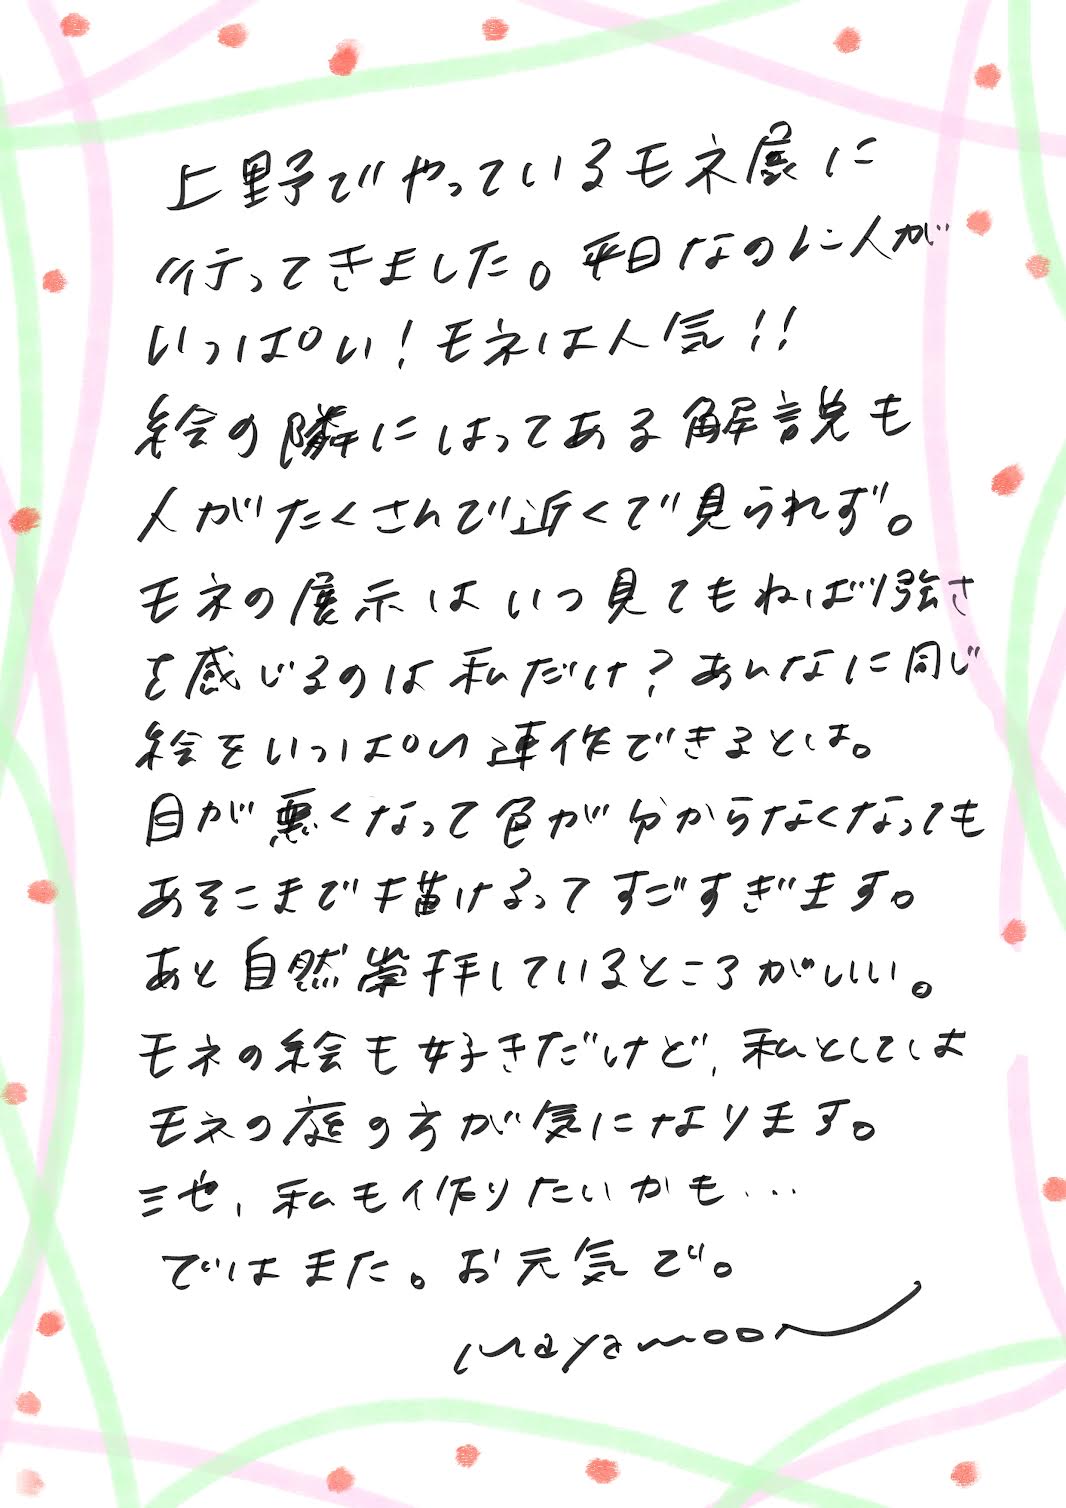 上野でやっているモネ展に
行ってきました。平日なのに人が
いっぱい！モネは人気!!
絵の隣にはってある解説も
人がたくさんで近くで見られず。
モネの展示はいつ見てもねばり強さ
を感じるのは私だけ？あんなに同じ
絵をいっぱい連作できるとは。
目が悪くなって色が分からなくなっても
あそこまで描けるってすごすぎます。
あと自然崇拝しているところがいい。
モネの絵も好きだけど、私としては
モネの庭の方が気になります。
三也、私も作りたいかも...
ではまた。お元気で。
mayamoon